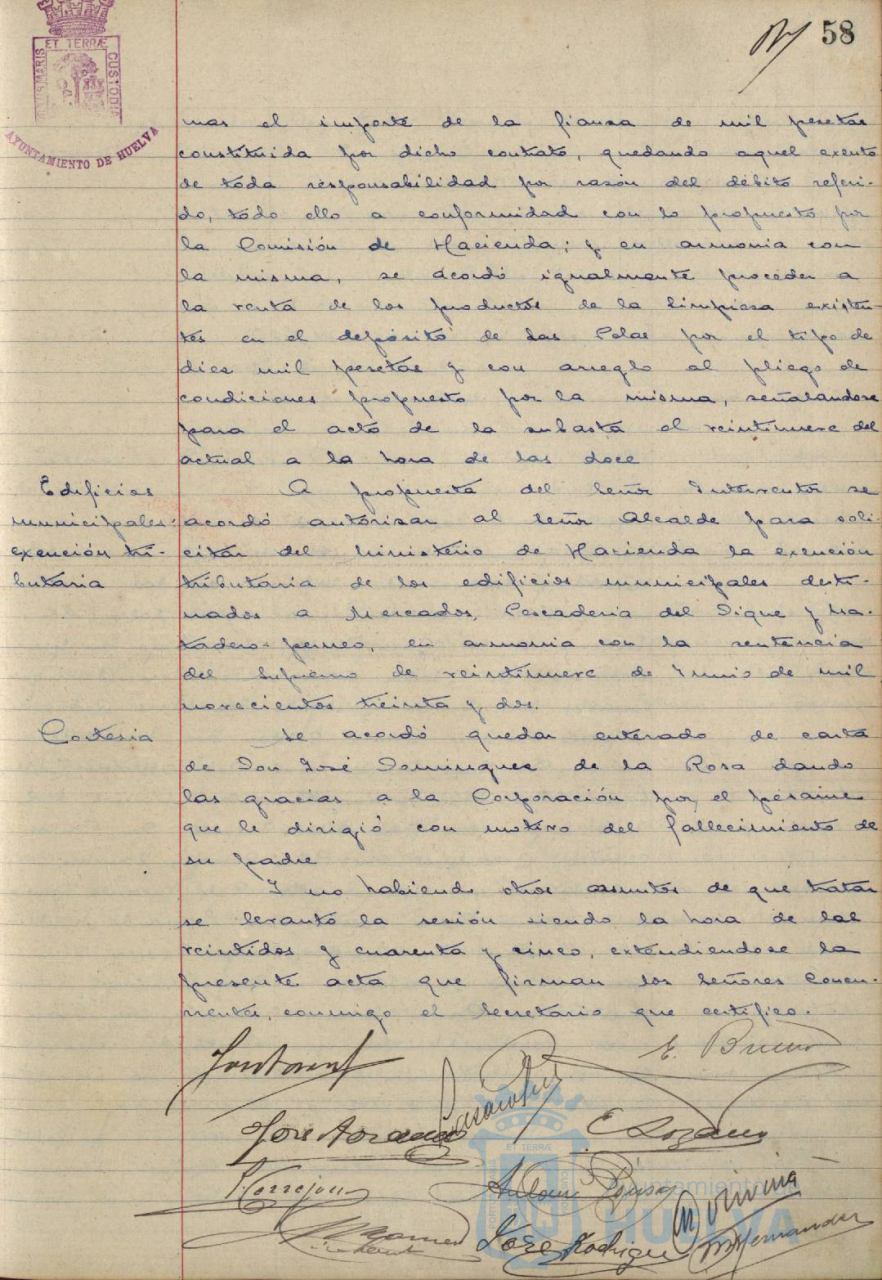 58
ET TERRÆ
CUSTODIA
MARIS
AYUNTAMIENTO DE HUELVA
mas el importe de la fianza de mil pesetas
constituida por dicho contrato, quedando aquel exento
de toda responsabilidad por razón del débito referi-
do, todo ello a conformidad con lo propuesto por
la Comisión de Hacienda; y en armonia con
la misma, se acordó igualmente proceder a
la venta de los productos de la limpieza existen-
tes en el depósito de Las Colas por el tipo de
diez mil pesetas y con arreglo al pliego de
condiciones propuesto por la misma, señalandose
para el acto de la subasta el veintinueve del
actual a la hora de las doce
Edificios
municipales:
exención tri-
butaria
A propuesta del Señor Interventor se
acordó autorizar al Señor Alcalde para soli-
citar del Ministerio de Hacienda la exención
tributaria de los edificios municipales desti-
nados a Mercados, Pescaderia del Dique y Ma-
tadero, en armonia con la sentencia
del Supremo de veintinueve de Junio de mil
novecientos treinta y dos.
Cortesia
Se acordó quedar enterado de carta
de Don José Dominguez de la Rosa dando
las gracias a la Corporación por el pésame
que le dirigió con motivo del fallecimiento de
su padre
Y no habiendo otros asuntos de que tratar
se levantó la sesión siendo la hora de las
veintidos y cuarenta y cinco, extendiendose la
presente acta que firman los Señores Concu-
rrentes, conmigo el Secretario que certifico.
E. Bueno
José
E Lozano
Antonio
José Rodrigue
M Hernandez
ET TERRÆ
Ayuntamiento
HUELVA